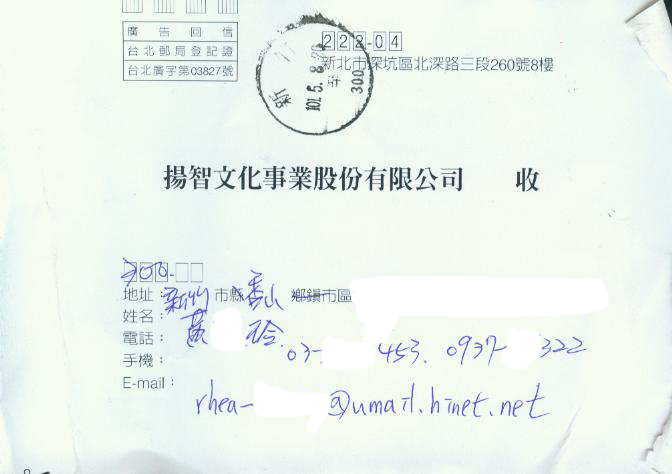 廣告回信
台北郵局登記證
台北廣字第03827號
222-04
新北市深坑區北深路三段260號8樓
新
101.5.8
300
揚智文化事業股份有限公司 收
300-
地址：新竹市縣香山鄉鎮市區
姓名：黃 玲
電話：03- 453. 0937- 322
手機：
E-mail：
rhea- @umail.hinet.net